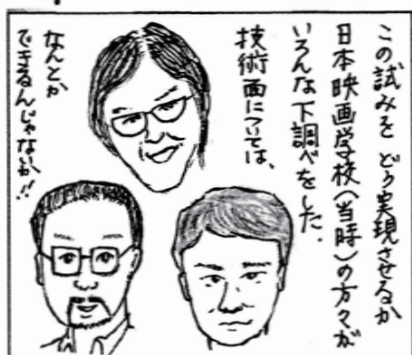 この試みを どう実現させるか
日本映画学校(当時)の方々が
いろんな下調べをした.
技術面については、
なんとか
できるんじゃないか!!